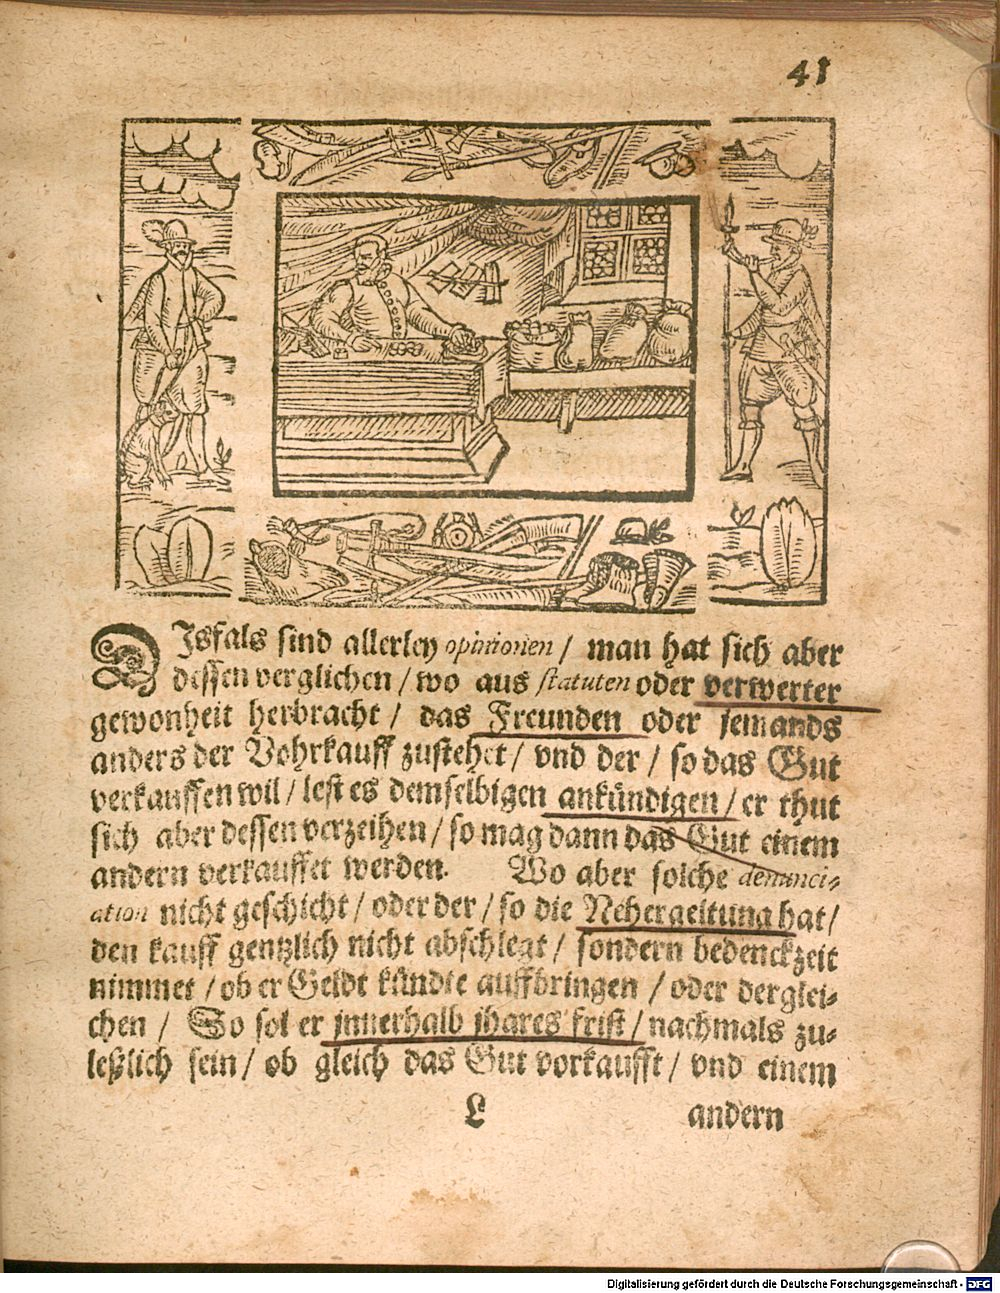 41
DIsfals sind allerley opinionen / man hat sich aber
dessen verglichen / wo aus statuten oder verwerter
gewonheit herbracht / das Freunden oder jemands
anders der Vohrkauff zustehet / vnd der / so das Gut
verkauffen wil / lest es demselbigen ankündigen / er thut
sich aber dessen verzeihen / so mag dann das Gut einem
andern verkauffet werden. Wo aber solche denunci-
ation nicht geschicht / oder der / so die Nehergeltung hat /
den kauff gentzlich nicht abschlegt / sondern bedenckzeit
nimmet / ob er Geldt kündte auffbringen / oder derglei-
chen / So sol er innerhalb ihares frist / nachmals zu-
leßlich sein / ob gleich das Gut vorkaufft / vnd einem
L andern
Digitalisierung gefördert durch die Deutsche Forschungsgemeinschaft - DFG